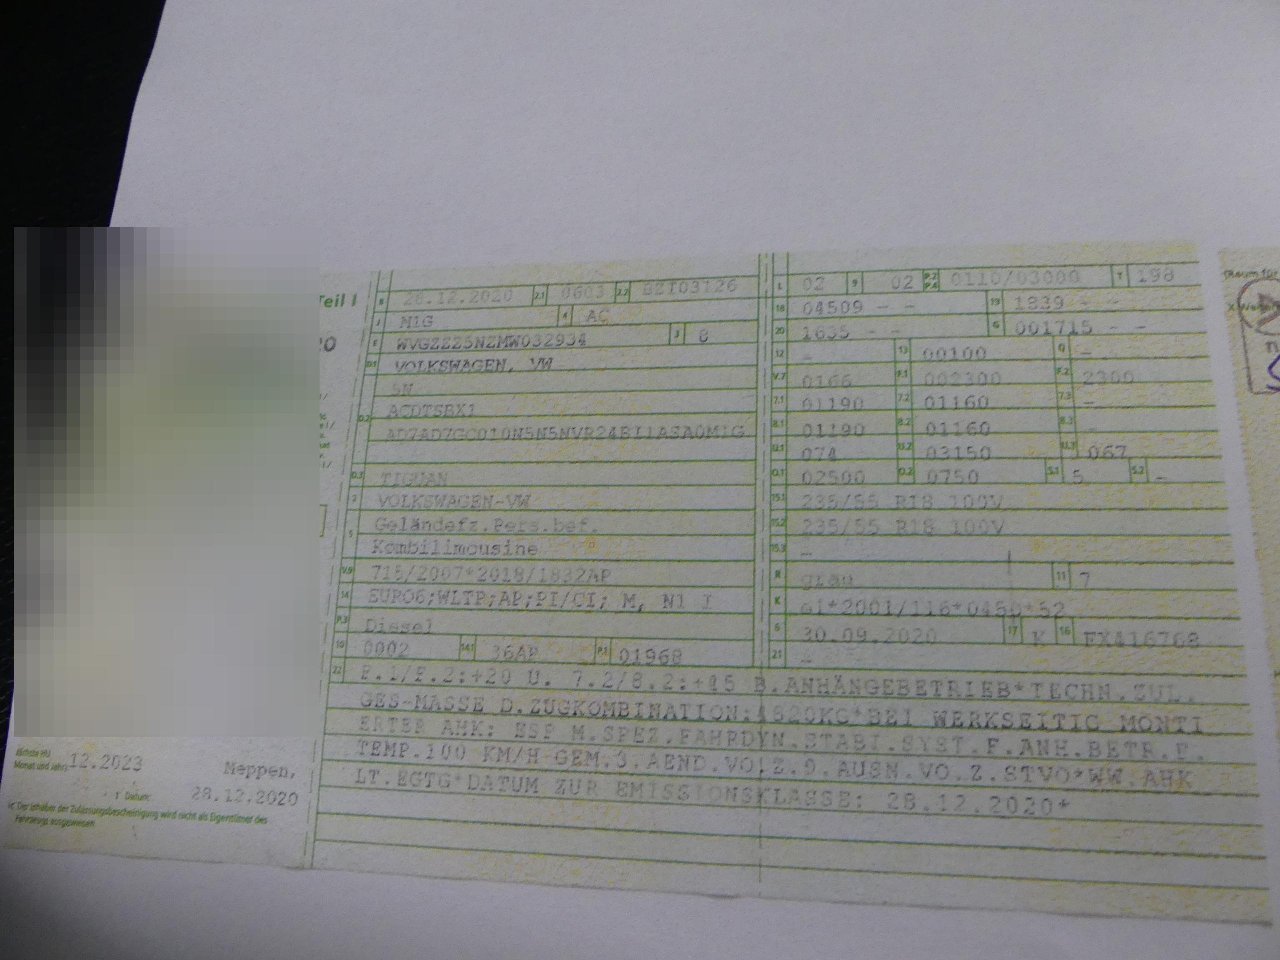 Teil I
B 28.12.2020 2.1 0603 2.2 BZT03126
J M1G 4 AC
E WVGZZZ5NZMW032934 3 8
D.1 VOLKSWAGEN, VW
5N
D.2 ACDTSBX1
AD7AD7GC010N5N5NVR24BI1ASA0M1G
D.3 TIGUAN
2 VOLKSWAGEN-VW
5 Geländefz.Pers.bef.
Kombilimousine
V.9 715/2007*2018/1832AP
14 EURO6;WLTP;AP;PI/CI; M, N1 I
P.3 Diesel
10 0002 14.1 36AP P.1 01968
L 02 9 02 P.2 P.4 0110/03000 T 198
18 04509 - - 19 1839 - -
20 1635 - - G 001715 - -
12 - 13 00100 Q -
V.7 0166 F.1 002300 F.2 2300
7.1 01190 7.2 01160 7.3 -
8.1 01190 8.2 01160 8.3 -
U.1 074 U.2 03150 U.3 067
O.1 02500 O.2 0750 S.1 5 S.2 -
15.1 235/55 R18 100V
15.2 235/55 R18 100V
15.3 -
R grau 11 7
K e1*2001/116*0450*52
6 30.09.2020 17 K 16 FX416768
21 -
22 F.1/F.2:+20 U. 7.2/8.2:+85 B.ANHÄNGEBETRIEB*TECHN.ZUL.
GES-MASSE D.ZUGKOMBINATION:4820KG*BEI WERKSEITIG MONTI
ERTER AHK: ESP M.SPEZ.FAHRDYN.STABI.SYST.F.ANH.BETR.F.
TEMP.100 KM/H GEM.3.AEND.VO.Z.9.AUSN.VO.Z.STVO*WW.AHK
LT.EGTG*DATUM ZUR EMISSIONSKLASSE: 28.12.2020*
Nächste HU
Monat und Jahr: 12.2023
Meppen,
Datum: 28.12.2020
Der Inhaber der Zulassungsbescheinigung wird nicht als Eigentümer des
Fahrzeugs ausgewiesen.